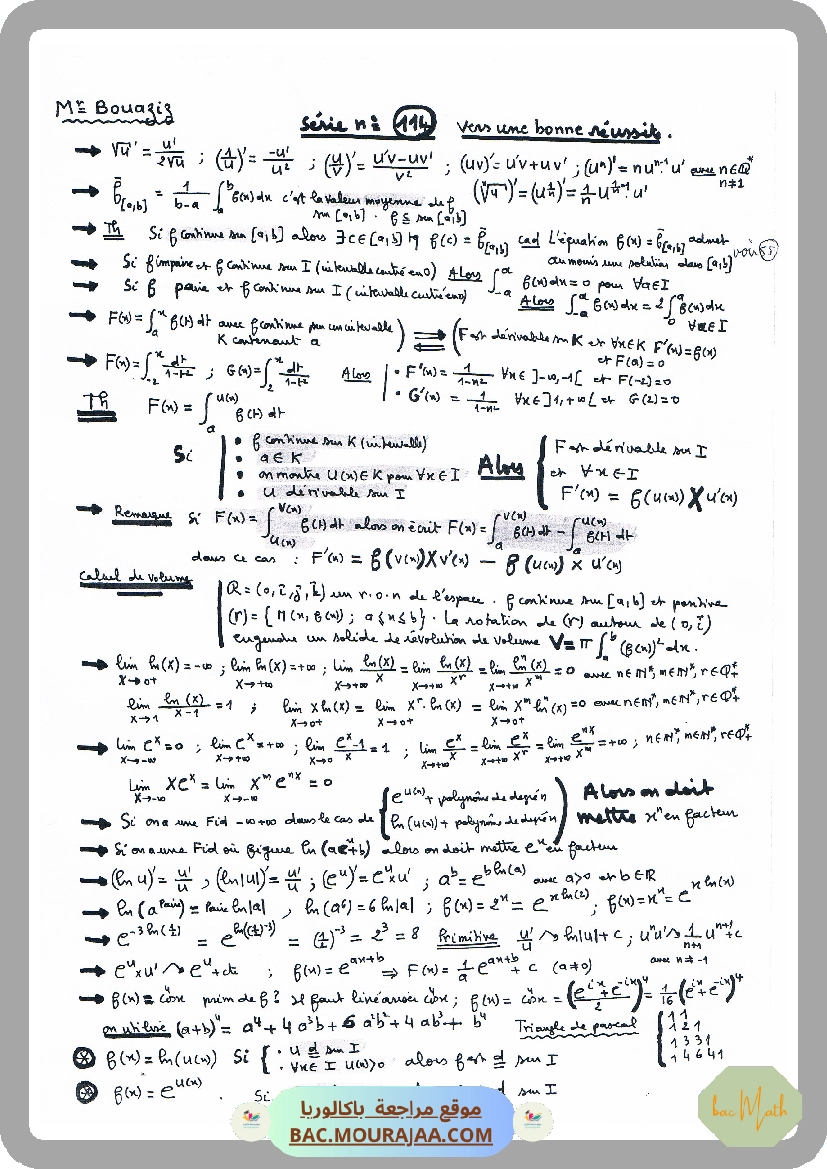 Mr Bouaziz
Série n° 114 Vers une bonne réussite.
→ √u' = u'/2√u ; (1/u)' = -u'/u² ; (u/v)' = (u'v-uv')/v² ; (uv)' = u'v+uv' ; (uⁿ)' = n uⁿ⁻¹ u' avec n∈Q* n≠1
→ f̄[a,b] = 1/(b-a) ∫ₐᵇ f(x)dx c'est la valeur moyenne de f sur [a,b] . f C sur [a,b] (ⁿ√u)' = (u^(1/n))' = 1/n u^(1/n-1) u'
→ Th Si f continue sur [a,b] alors ∃ c∈[a,b] tq f(c) = f̄[a,b] cad l'équation f(x) = f̄[a,b] admet
au moins une solution dans [a,b] voir 55
→ Si f impaire et f continue sur I (intervalle centré en 0) Alors ∫₋ₐᵃ f(x)dx = 0 pour ∀a∈I
→ Si f paire et f continue sur I (intervalle centré en 0) Alors ∫₋ₐᵃ f(x)dx = 2∫₀ᵃ f(x)dx ∀a∈I
→ F(x) = ∫ₐˣ f(t)dt avec f continue sur un intervalle K contenant a ) ⟺ ( F est dérivable sur K et ∀x∈K F'(x) = f(x) et F(a) = 0
→ F(x) = ∫₋₂ˣ dt/(1-t²) ; G(x) = ∫₂ˣ dt/(1-t²) Alors • F'(x) = 1/(1-x²) ∀x∈]-∞,-1[ et F(-2)=0
• G'(x) = 1/(1-x²) ∀x∈]1,+∞[ et G(2)=0
Th F(x) = ∫ₐ^(u(x)) f(t)dt
Si • f continue sur K (intervalle)
• a∈K
• on montre U(x)∈K pour ∀x∈I
• U dérivable sur I
Alors { F est dérivable sur I
et ∀x∈I
F'(x) = f(u(x)) × u'(x)
→ Remarque Si F(x) = ∫_(U(x))^(V(x)) f(t)dt alors on écrit F(x) = ∫ₐ^(V(x)) f(t)dt - ∫ₐ^(U(x)) f(t)dt
dans ce cas : F'(x) = f(v(x)) × v'(x) - f(u(x)) × u'(x)
Calcul de volume
R = (o, i, j, k) un r.o.n de l'espace . f continue sur [a,b] et positive
(Γ) = { M(x, f(x)) ; a ≤ x ≤ b } . La rotation de (Γ) autour de (o, i)
engendre un solide de révolution de volume V = π ∫ₐᵇ (f(x))² dx.
→ lim ln(x) = -∞ ; lim ln(x) = +∞ ; lim ln(x)/x = lim ln(x)/xʳ = lim lnⁿ(x)/xᵐ = 0 avec n∈IN*, m∈IN*, r∈Q*₊
x→0⁺ x→+∞ x→+∞ x→+∞ x→+∞
lim ln(x)/(x-1) = 1 ; lim x ln(x) = lim xʳ.ln(x) = lim xᵐ lnⁿ(x) = 0 avec n∈IN*, m∈IN*, r∈Q*₊
x→1 x→0⁺ x→0⁺ x→0⁺
→ lim eˣ = 0 ; lim eˣ = +∞ ; lim (eˣ-1)/x = 1 ; lim eˣ/x = lim eˣ/xʳ = lim eⁿˣ/xᵐ = +∞ ; n∈IN*, m∈IN*, r∈Q*₊
x→-∞ x→+∞ x→0 x→+∞ x→+∞ x→+∞
lim xeˣ = lim xᵐ eⁿˣ = 0
x→-∞ x→-∞
→ Si on a une Fid -∞+∞ dans le cas de { e^(u(x)) + polynôme de degré n
ln(u(x)) + polynôme de degré n ) Alors on doit mettre xⁿ en facteur
→ Si on a une Fid où figure ln(aeˣ+b) alors on doit mettre eˣ en facteur
→ (ln u)' = u'/u , (ln|u|)' = u'/u ; (eᵘ)' = eᵘ×u' ; aᵇ = e^(b ln(a)) avec a>0 et b∈IR
→ ln(a^Paire) = Paire ln|a| , ln(a⁶) = 6 ln|a| ; f(x) = 2ˣ = e^(x ln(2)) ; f(x) = xˣ = e^(x ln(x))
→ e^(-3 ln(1/2)) = e^(ln((1/2)⁻³)) = (1/2)⁻³ = 2³ = 8 Primitive u'/u ↝ ln|u|+c ; uⁿu' ↝ 1/(n+1) uⁿ⁺¹+c
avec n≠-1
→ eᵘ×u' ↝ eᵘ+cte ; f(x) = e^(ax+b) ⇒ F(x) = 1/a e^(ax+b) + c (a≠0)
→ f(x) = cos⁴x prim de f ? Il faut linéariser cos⁴x ; f(x) = cos⁴x = ((e^(ix)+e^(-ix))/2)⁴ = 1/16 (e^(ix)+e^(-ix))⁴
on utilise (a+b)⁴ = a⁴ + 4a³b + 6a²b² + 4ab³ + b⁴ Triangle de pascal { 1 1
1 2 1
1 3 3 1
1 4 6 4 1
⊛ f(x) = ln(u(x)) Si { • u d sur I
• ∀x∈I u(x)>0 alors f est d sur I
⊛ f(x) = e^(u(x)) . Si d sur I
موقع مراجعة باكالوريا
BAC.MOURAJAA.COM
bac Math